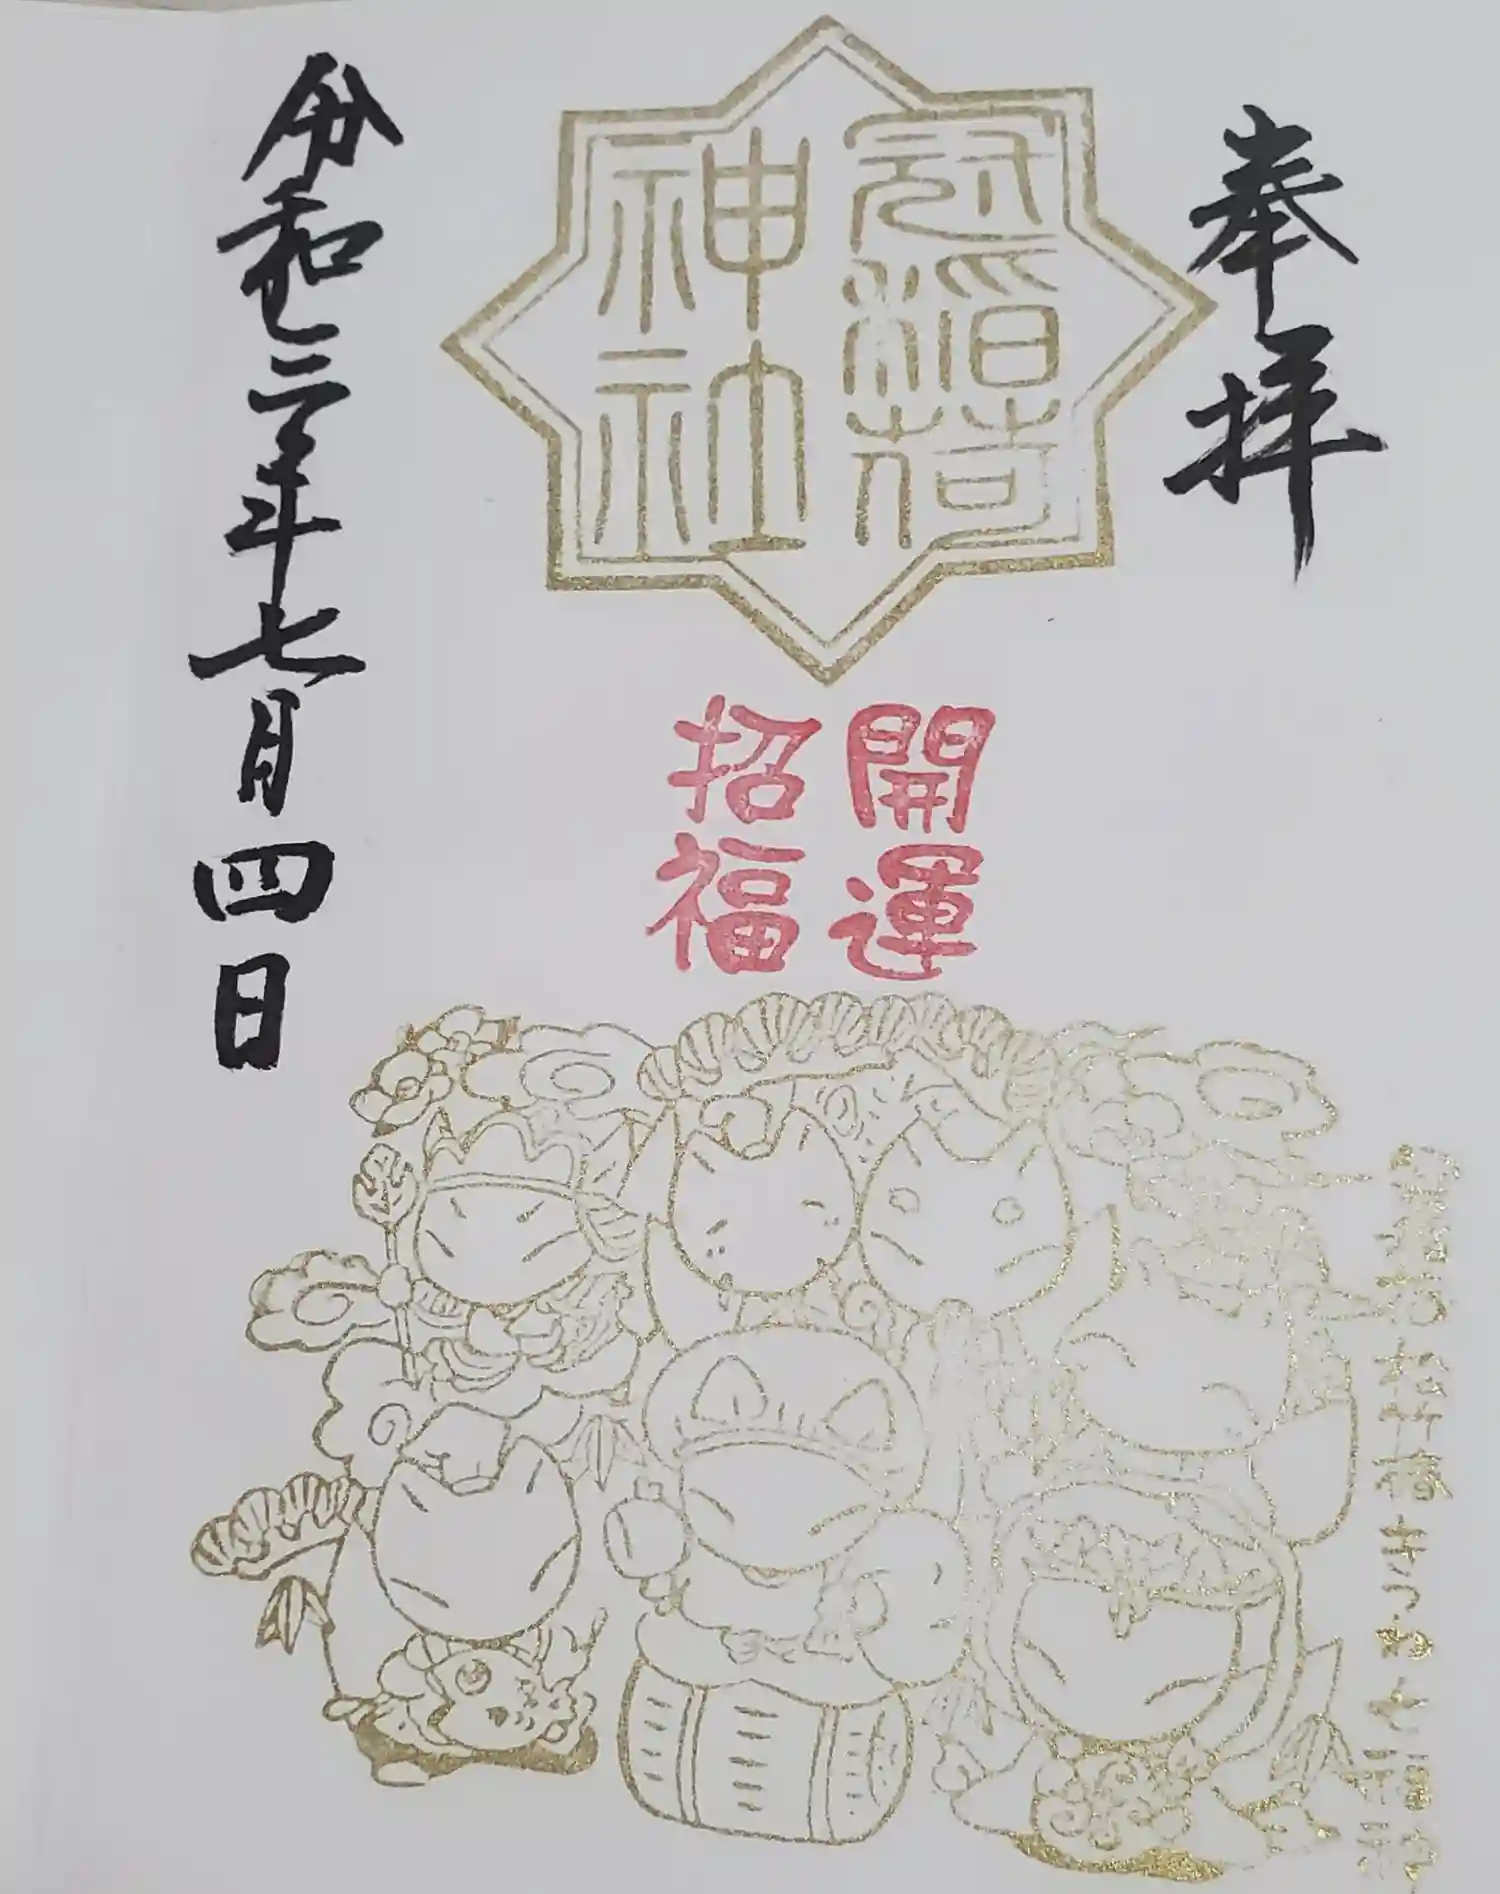 奉拝
冠稲荷
神社
開運
招福
令和二年七月四日
冠稲荷松竹椿きつね七福神